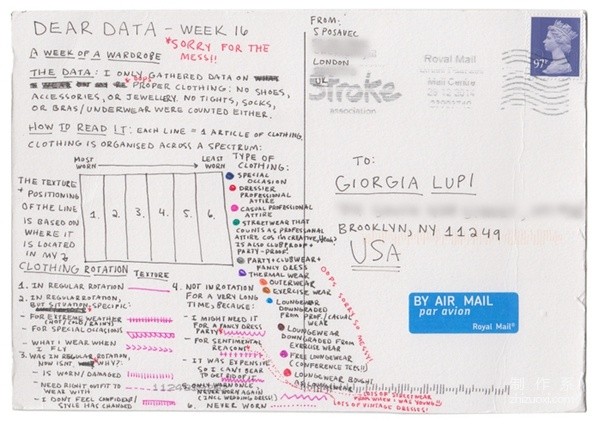 DEAR DATA - WEEK 16
*SORRY FOR THE
MESS!!
A WEEK OF A WARDROBE
THE DATA: I ONLY GATHERED DATA ON
PROPER CLOTHING: NO SHOES,
ACCESSORIES, OR JEWELLERY. NO TIGHTS, SOCKS,
OR BRAS/UNDERWEAR WERE COUNTED EITHER.
HOW TO READ IT: EACH LINE = 1 ARTICLE OF CLOTHING.
CLOTHING IS ORGANISED ACROSS A SPECTRUM:
MOST
WORN
LEAST
WORN
THE TEXTURE
+ POSITIONING
OF THE LINE
IS BASED ON
WHERE IT
IS LOCATED
IN MY
CLOTHING ROTATION
1. 2. 3. 4. 5. 6.
TYPE OF
CLOTHING:
SPECIAL
OCCASION
DRESSIER
PROFESSIONAL
ATTIRE
CASUAL PROFESSIONAL
ATTIRE
STREETWEAR THAT
COUNTS AS PROFESSIONAL
ATTIRE COS I'M CREATIVE,
IS ALSO CLUBPROOF +
PARTY-PROOF.
PARTY + CLUBWEAR +
FANCY DRESS
THERMAL WEAR
OUTERWEAR
EXERCISE WEAR
LOUNGEWEAR
DOWNGRADED
FROM PROF./CASUAL
WEAR
LOUNGEWEAR
DOWNGRADED FROM
EXERCISE WEAR
FREE LOUNGEWEAR
(CONFERENCE TEES!!)
LOUNGEWEAR BOUGHT
AS LOUNGEWEAR
OOPS SORRY SO MESSY!
TEXTURE
1. IN REGULAR ROTATION
2. IN REGULAR ROTATION,
BUT SPECIFIC:
- FOR EXTREME WEATHER
(HOT/COLD/RAIN)
- FOR SPECIAL OCCASIONS
- WHAT I WEAR WHEN
I FLY
3. WAS IN REGULAR ROTATION,
NOW ISN'T. WHY?:
- IS WORN/DAMAGED
- NEED RIGHT OUTFIT TO
WEAR WITH
- I DON'T FEEL CONFIDENT/
STYLE HAS CHANGED
4. NOT IN ROTATION
FOR A VERY LONG
TIME, BECAUSE:
- I MIGHT NEED IT
FOR A FANCY DRESS
PARTY
- FOR SENTIMENTAL
REASONS
- IT WAS EXPENSIVE
SO I CAN'T BEAR
TO GET RID OF IT
ONLY WORN ONCE,
NEVER WORN AGAIN
(INCL WEDDING DRESS!)
6. NEVER WORN
LOTS OF STREETWEAR
FROM WHEN I WAS YOUNG
LOTS OF VINTAGE DRESSES!
FROM:
S POSAVEC
LONDON
UK
Royal Mail
Stroke
association
97P
TO:
GIORGIA LUPI
BROOKLYN, NY 11249
USA
BY AIR MAIL
par avion
Royal Mail®